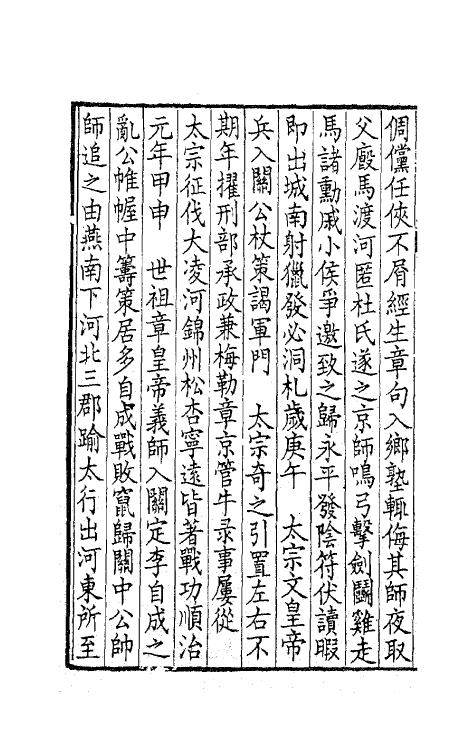 倜儻任俠不屑經生章句入鄉塾輒侮其師夜取
父廄馬渡河匿杜氏遂之京師鳴弓擊劍鬭雞走
馬諸勳戚小侯爭邀致之歸永平發陰符伏讀暇
即出城南射獵發必洞札歲庚午　太宗文皇帝
兵入關公杖策謁軍門　太宗奇之引置左右不
期年擢刑部承政兼梅勒章京管牛录事屢從
太宗征伐大凌河錦州松杏寧遠皆著戰功順治
元年甲申　世祖章皇帝義師入關定李自成之
亂公帷幄中籌策居多自成戰敗竄歸關中公帥
師追之由燕南下河北三郡踰太行出河東所至